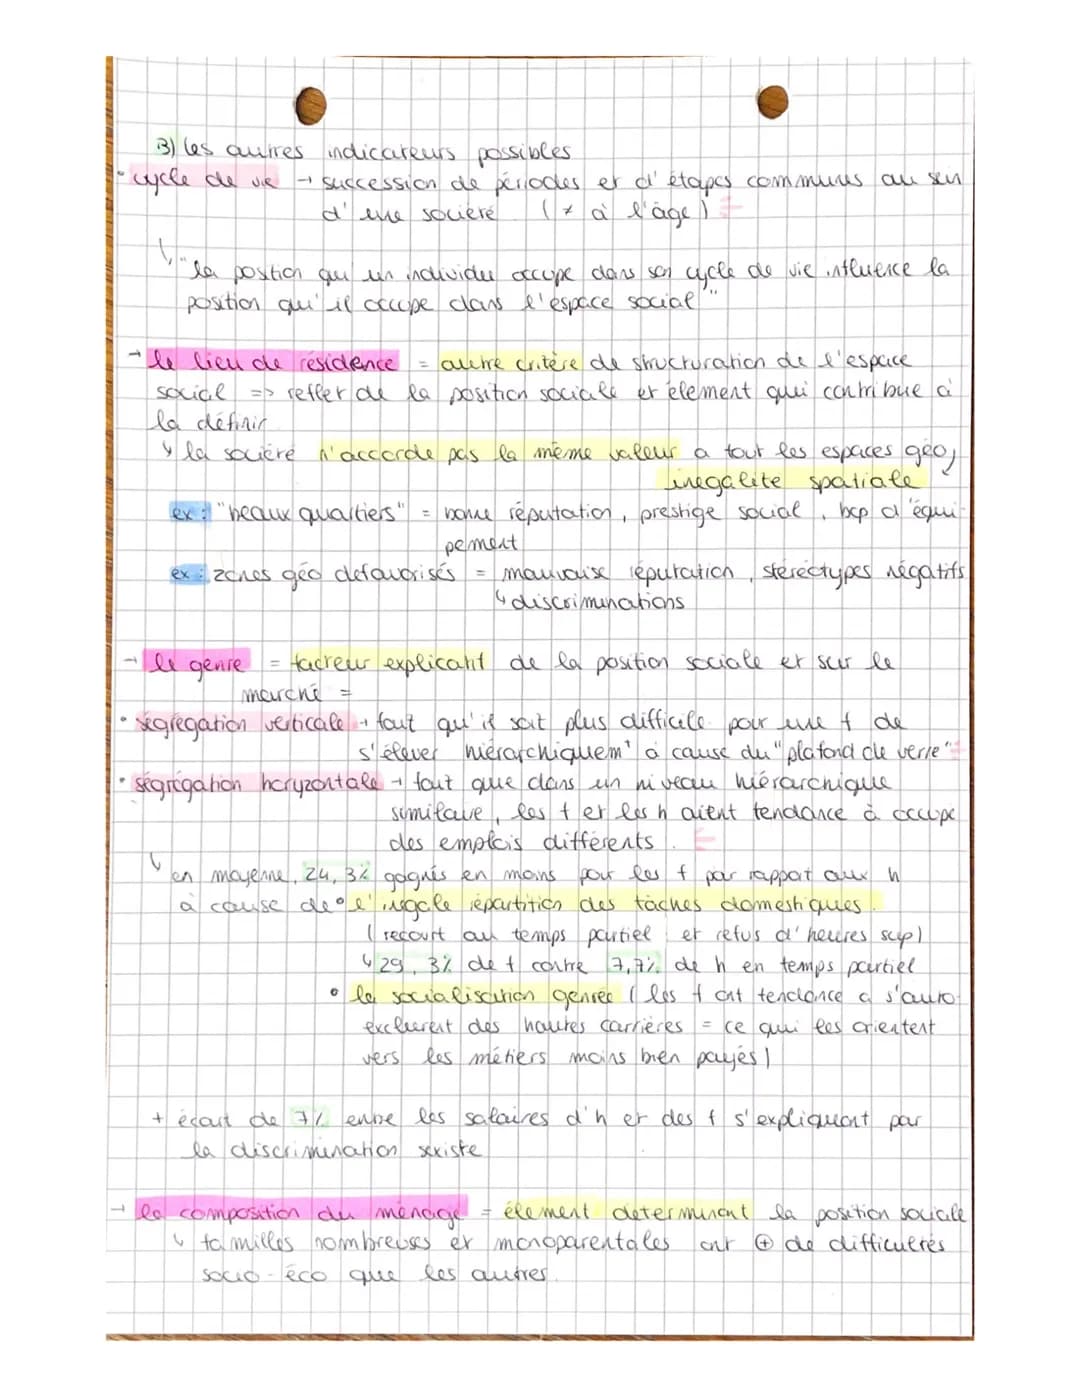 B) les autres indicateurs possibles
• cycle de vie → succession de périodes et d'étapes communes au sein
d'une société (≠ à l'âge)
↳ "la position qu'un individu occupe dans son cycle de vie influence la
position qu'il occupe dans l'espace social"
→ le lieu de résidence = autre critère de structuration de l'espace
social => reflet de la position sociale et élement qui contribue à
la définir
↳ la société n'accorde pas la même valeur a tout les espaces géo,
inégalité spatiale
ex : "beaux quartiers" = bonne réputation, prestige social, bcp d'équi-
pement
ex : zones géo défavorisés = mauvaise réputation, stéréotypes négatifs
↳ discriminations
→ le genre = facteur explicatif de la position sociale et sur le
marché =
• ségrégation verticale → fait qu'il soit plus difficile pour une f de
s'élever hiérarchiquemt à cause du "plafond de verre"
• ségrégation horyzontale → fait que dans un niveau hiérarchique
similaire, les f et les h aient tendance à occupe
des emplois différents.
↳ en moyenne, 24,3% gagnés en moins pour les f par rapport aux h
à cause de • l'inégale répartition des tâches domestiques.
(recourt au temps partiel et refus d'heures sup)
↳ 29,3% de f contre 7,7% de h en temps partiel
• la socialisation genrée (les f ont tendance a s'auto-
excluent des hautes carrières = ce qui les orientent
vers les métiers moins bien payés)
+ écart de 7% entre les salaires d'h et des f s'expliquant par
la discrimination sexiste
→ la composition du ménage = élement déterminant la position sociale
↳ familles nombreuses et monoparentales ont ⊕ de difficultés
socio-éco que les autres.